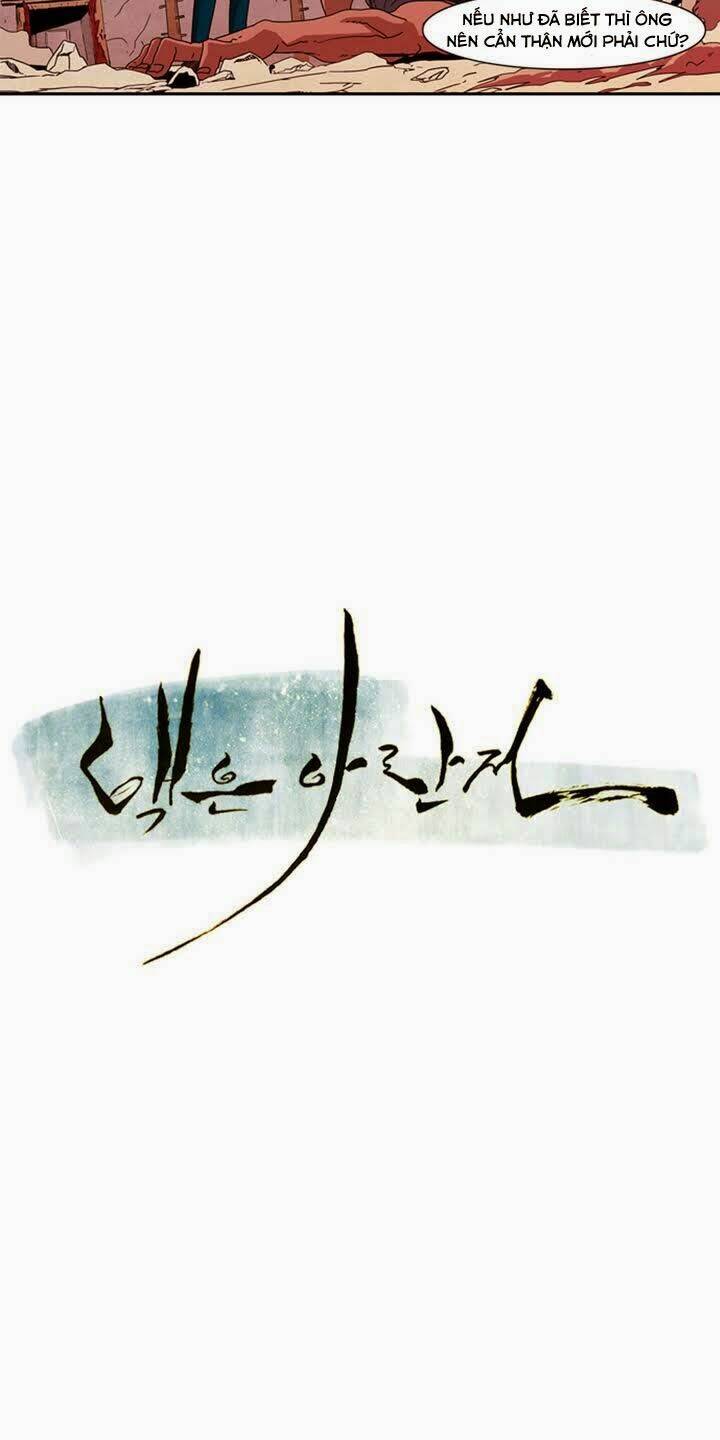 NẾU NHƯ ĐÃ BIẾT THÌ ÔNG
NÊN CẨN THẬN MỚI PHẢI CHỨ?
넋은 아란저